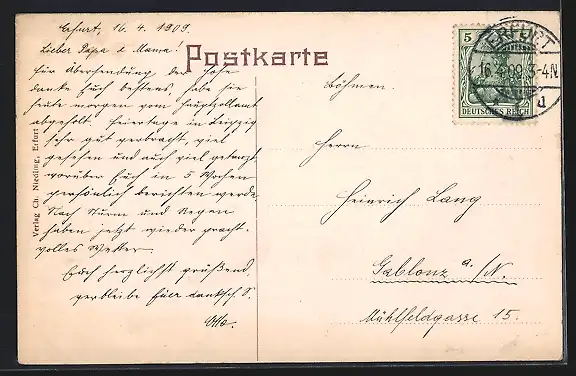 Erfurt, 16. 4. 1909.
Lieber Papa & Mama!
Für Übersendung der Hose
danke Euch bestens, habe sie
heute morgen vom Hauptzollamt
abgeholt. Feiertage in Leipzig
sehr gut verbracht, viel
gesehen und auch viel getanzt,
worüber Euch in 5 Wochen
persönlich berichten werde.
Nach Sturm und Regen
haben jetzt wieder pracht-
volles Wetter.
Euch herzlichst grüßend,
verbleibe Euer dankb. S.
Otto.
Verlag Ch. Niedling, Erfurt
Postkarte
5
DEUTSCHES REICH
ERFURT
16.4.09 3-4N
Böhmen.
Herrn
Heinrich Lang
Gablonz a./N.
Mühlfeldgasse 15.